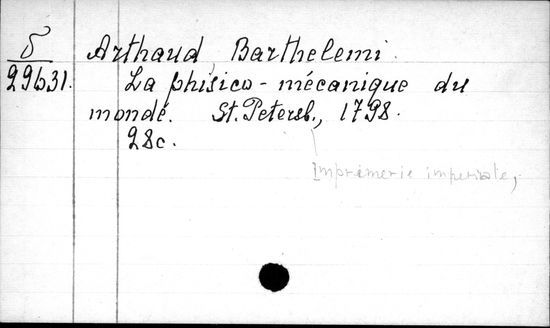 δ Arthaud, Barthelemi.
29631. La phisico-mécanique du
mondé. St. Petersb., 1798.
28c.
Imprimerie imperiale,